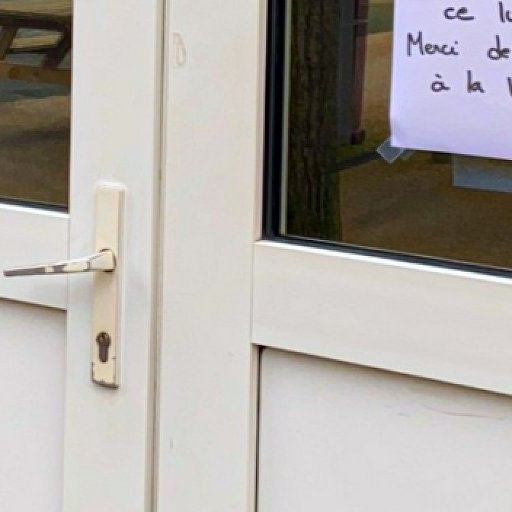 ce
Merci de
à la